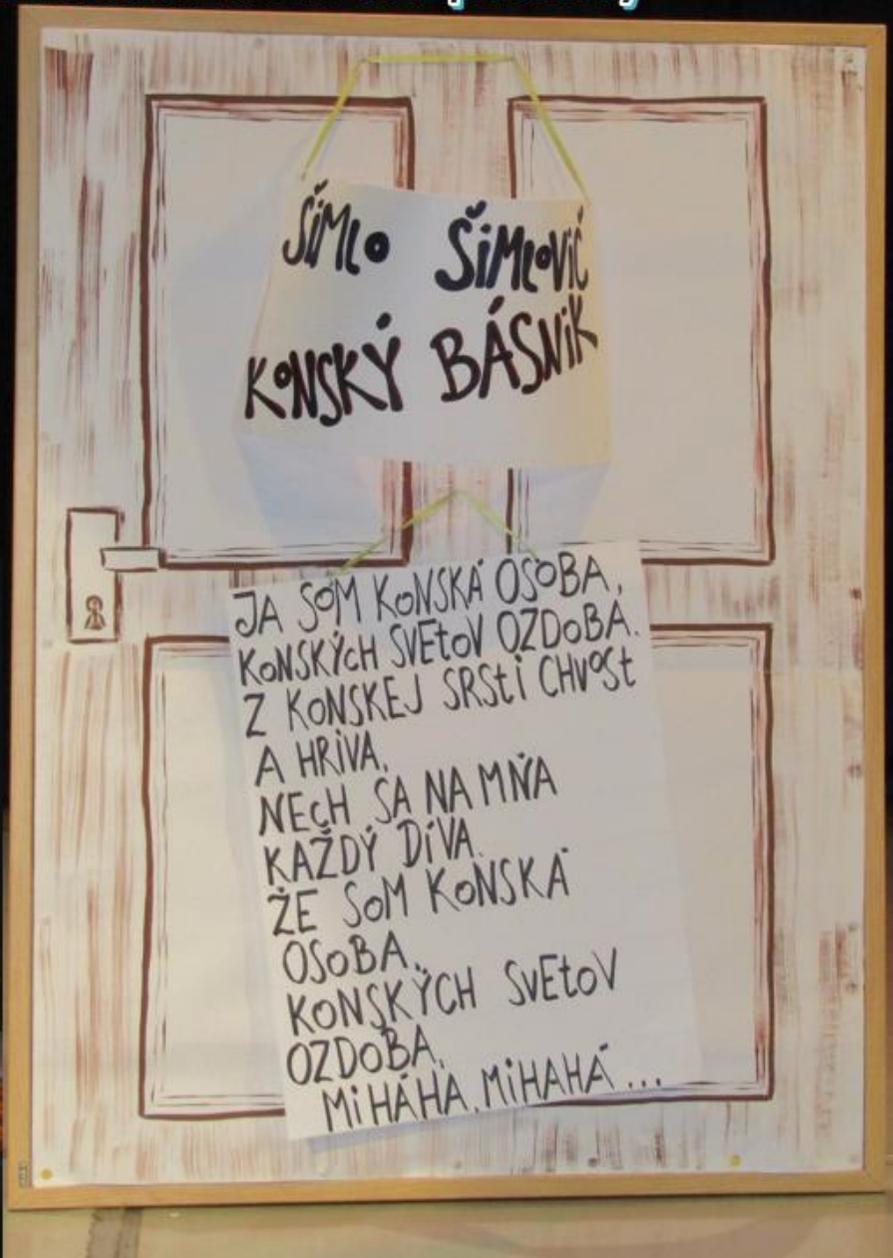 ŠÍMLO ŠIMLOVIČ
KONSKÝ BÁSNIK
JA SOM KONSKÁ OSOBA,
KONSKÝCH SVETOV OZDOBA.
Z KONSKEJ SRSTI CHVOST
A HRIVA,
NECH SA NA MŇA
KAŽDÝ DÍVA.
ŽE SOM KONSKÁ
OSOBA,
KONSKÝCH SVETOV
OZDOBA,
MIHÁHA, MIHAHÁ...